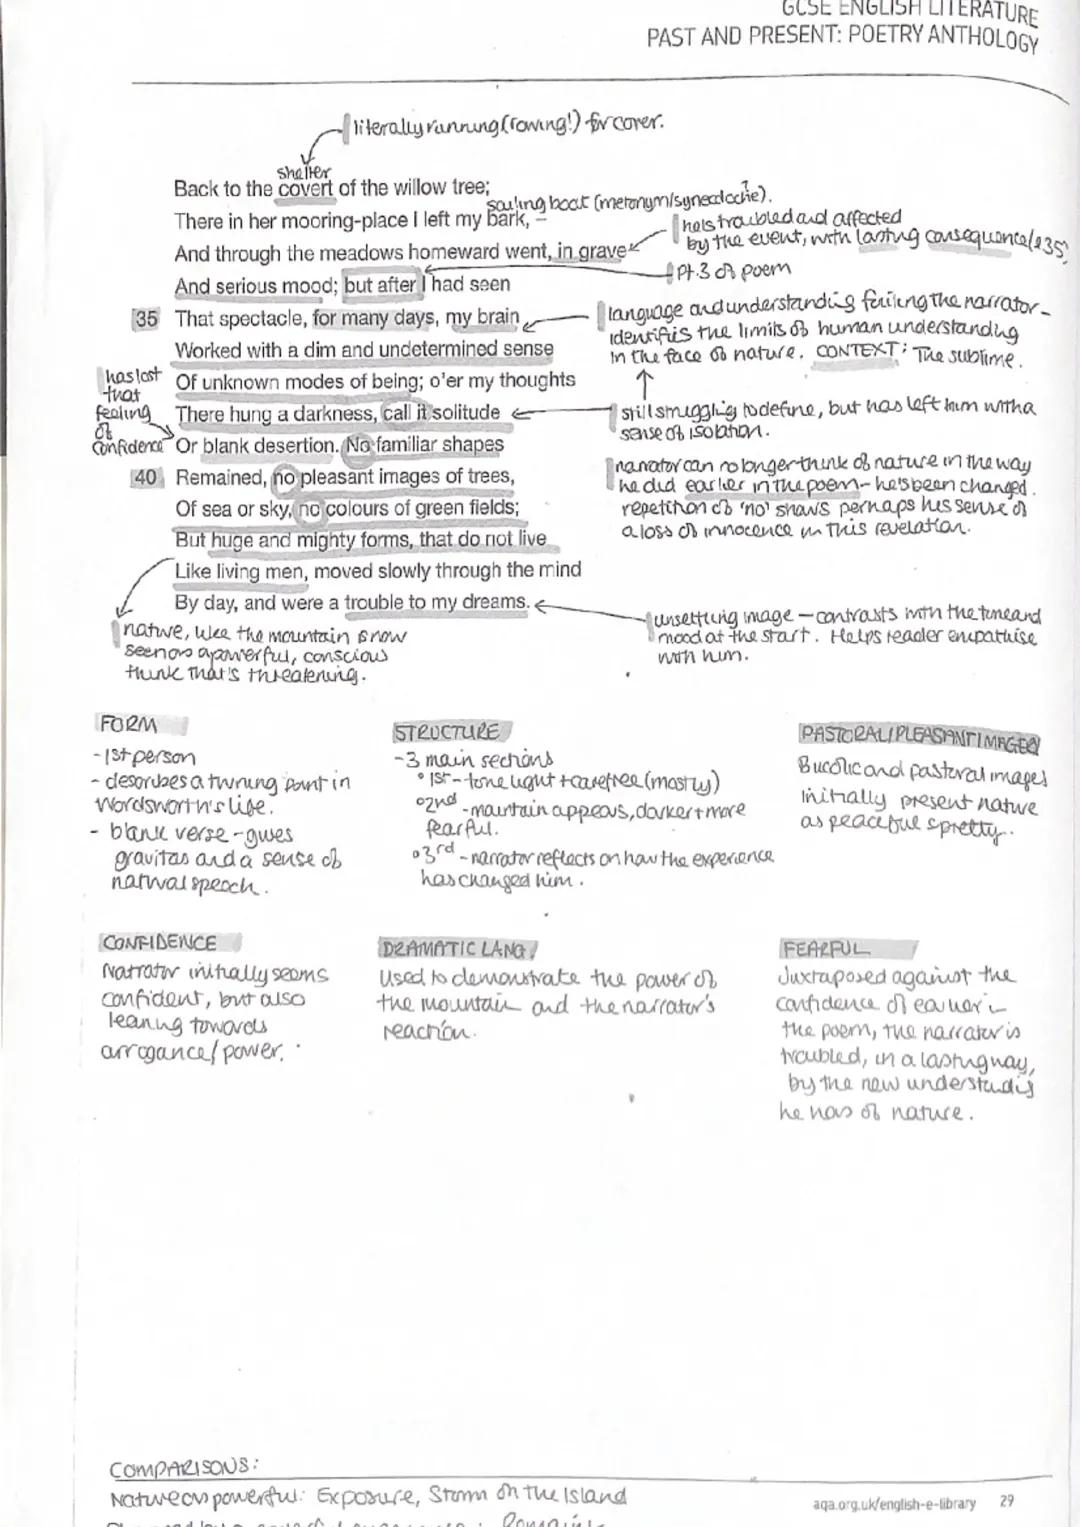 GCSE ENGLISH LITERATURE
PAST AND PRESENT: POETRY ANTHOLOGY
literally running (rowing!) for cover.
shelter
Back to the covert of the willow tree;
sailing boat (metonym/synecdoche?).
There in her mooring-place I left my bark, –
he's troubled and affected
by the event, with lasting consequence (l35)
And through the meadows homeward went, in grave
pt.3 of poem
And serious mood; but after I had seen
35 That spectacle, for many days, my brain
language and understanding failing the narrator -
identifies the limits of human understanding
in the face of nature. CONTEXT: The sublime.
Worked with a dim and undetermined sense
Of unknown modes of being; o'er my thoughts
has lost
that
feeling
of
confidence
There hung a darkness, call it solitude
still struggling to define, but has left him with a
sense of isolation.
Or blank desertion. No familiar shapes
40 Remained, no pleasant images of trees,
narrator can no longer think of nature in the way
he did earlier in the poem - he's been changed.
repetition of 'no' shows perhaps his sense of
a loss of innocence in this revelation.
Of sea or sky, no colours of green fields;
But huge and mighty forms, that do not live
Like living men, moved slowly through the mind
By day, and were a trouble to my dreams.
unsettling image - contrasts with the tone and
mood at the start. Helps reader empathise
with him.
nature, like the mountain is now
seen as a powerful, conscious
think that's threatening.
FORM
- 1st person
- describes a turning point in
Wordsworth's life.
- blank verse - gives
gravitas and a sense of
natural speech.
STRUCTURE
- 3 main sections
• 1st - tone light + carefree (mostly)
• 2nd - mountain appears, darker + more
fearful.
• 3rd - narrator reflects on how the experience
has changed him.
PASTORAL/PLEASANT IMAGERY
Bucolic and pastoral images
initially present nature
as peaceful & pretty.
CONFIDENCE
Narrator initially seems
confident, but also
leaning towards
arrogance/power.
DRAMATIC LANG.
Used to demonstrate the power of
the mountain and the narrator's
reaction.
FEARFUL
Juxtaposed against the
confidence of earlier in
the poem, the narrator is
troubled, in a lasting way,
by the new understanding
he has of nature.
COMPARISONS:
Nature as powerful: Exposure, Storm on the Island
aqa.org.uk/english-e-library 29